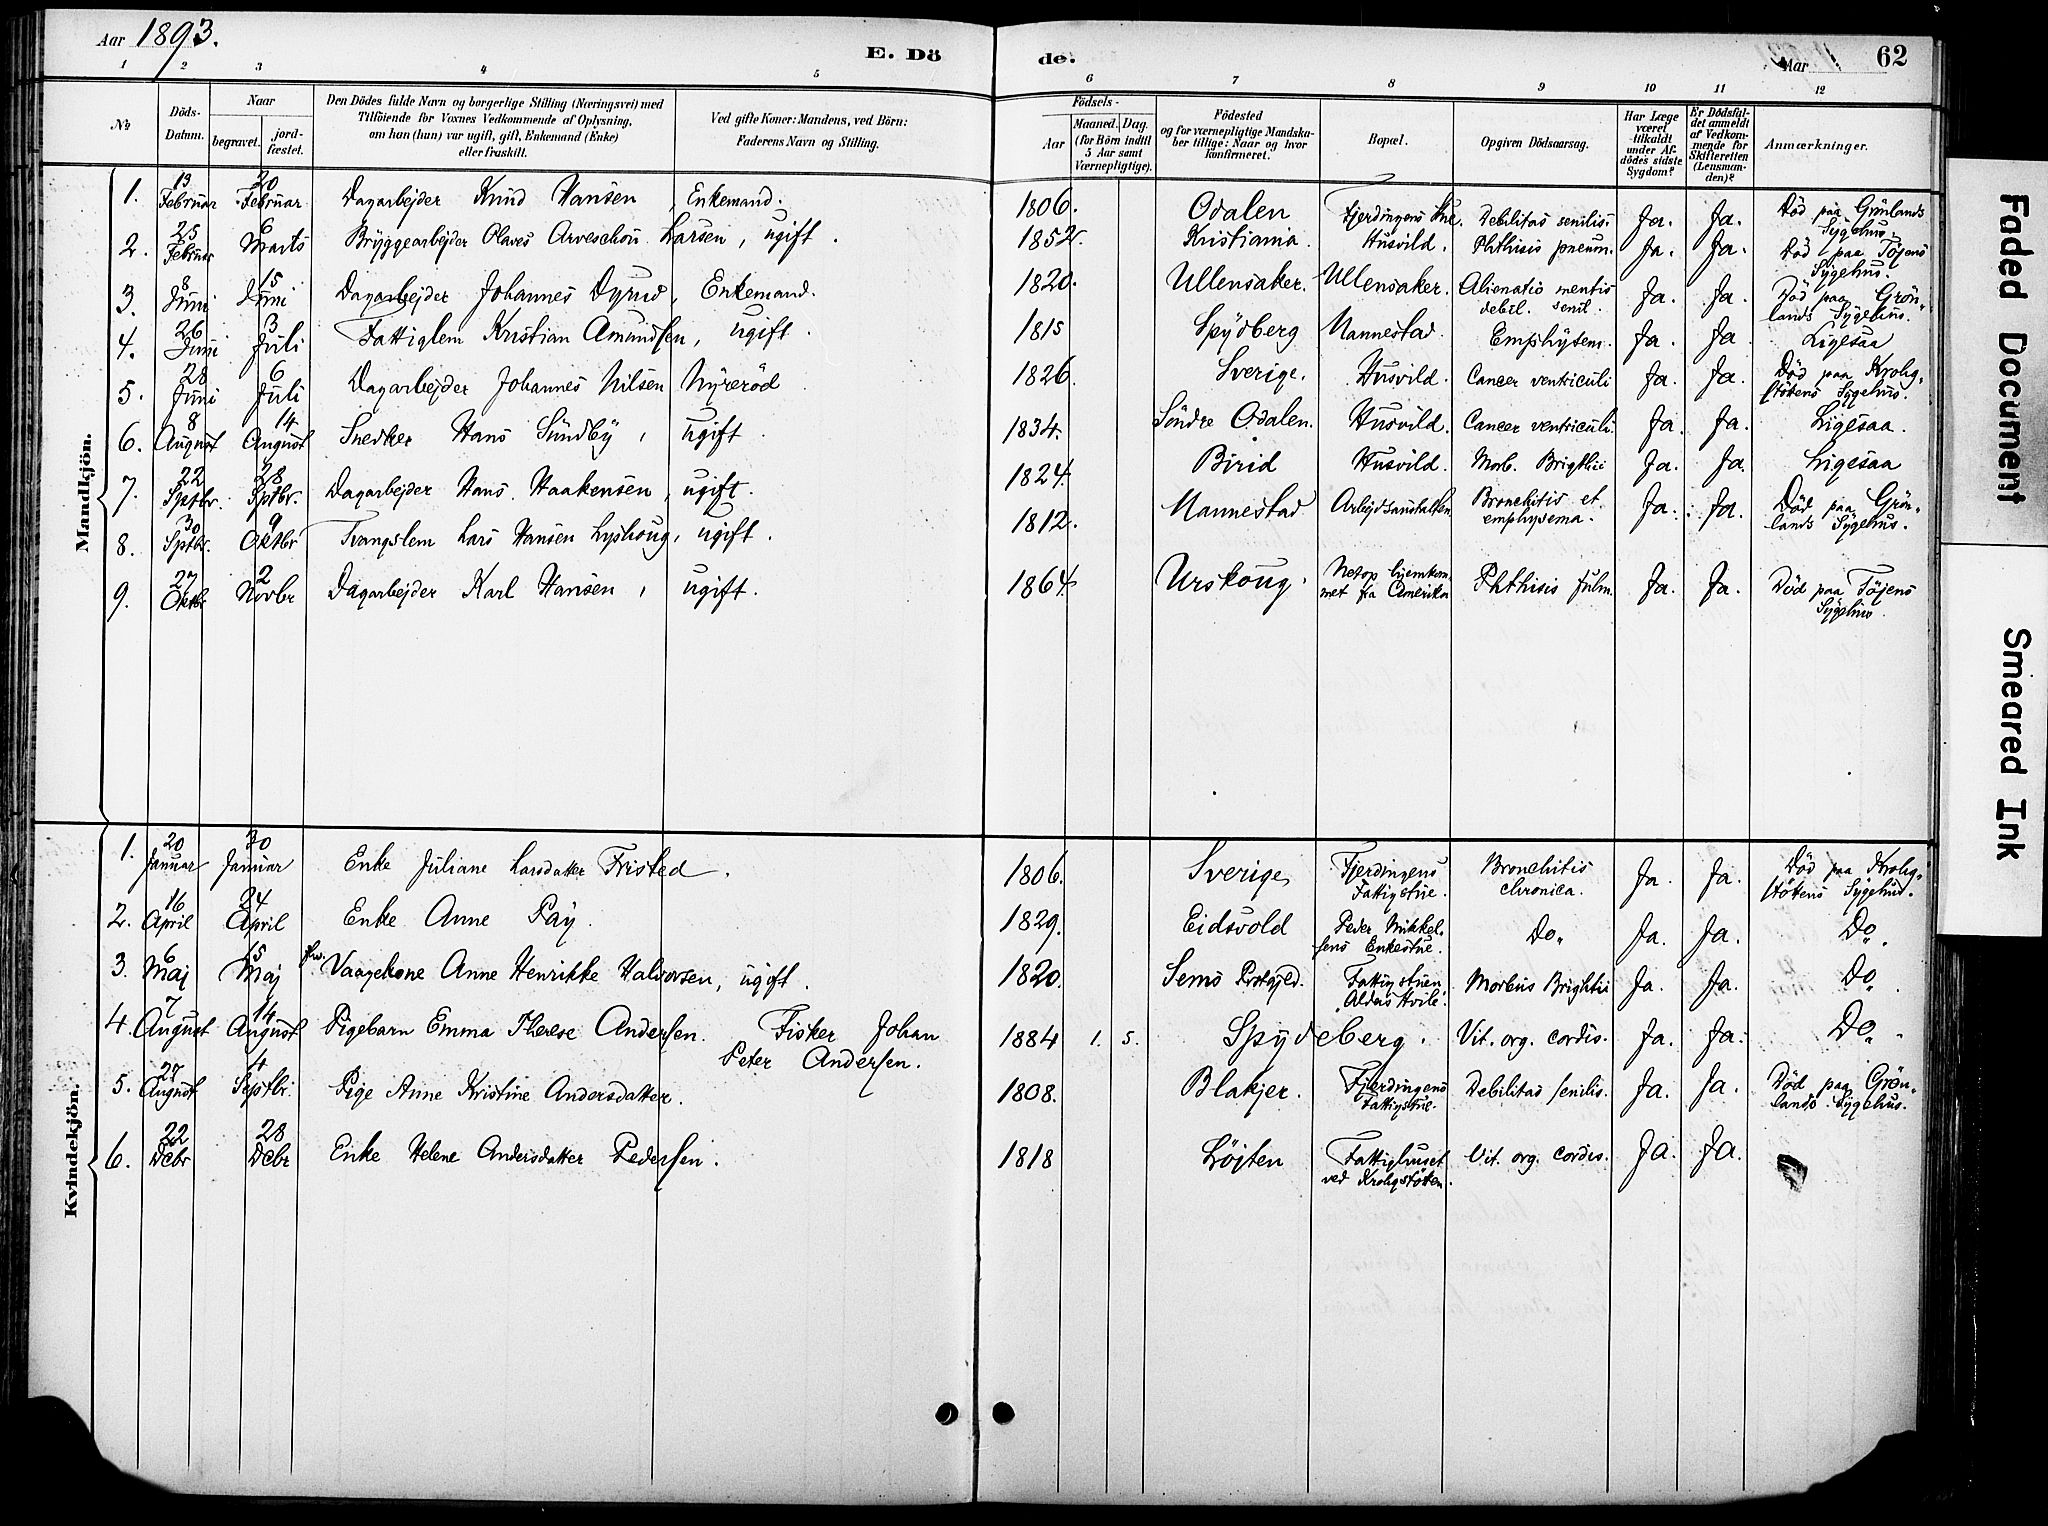 Aar 1893.
E. Dö
de.
Aar
62
1 2 3 4 5 6 7 8 9 10 11 12
No
Döds-Datum.
Naar
begravet.
jord-fæstet.
Den Dödes fulde Navn og borgerlige Stilling (Næringsvei) med
Tilföiende for Voxnes Vedkommende af Oplysning,
om han (hun) var ugift, gift, Enkemand (Enke)
eller fraskilt.
Ved gifte Koner: Mandens, ved Börn:
Faderens Navn og Stilling.
Födsels-
Aar
Maaned. Dag.
(for Börn indtil
5 Aar samt
Værnepligtige).
Födested
og for værnepligtige Mandska-
ber tillige: Naar og hvor
konfirmeret.
Bopæl.
Opgiven Dödsaarsag.
Har Læge
været
tilkaldt
under Af-
dödes sidste
Sygdom?
Er Dödsfal-
det anmeldt
af Vedkom-
mende for
Skifteretten
(Lensman-
den)?
Anmærkninger.
Mandkjön.
1. 13 Februar 20 Februar Dagarbejder Knud Hansen, Enkemand. 1806. Odalen Fjerdingens Stue. Debilitas senilis. Ja. Ja. Död paa Grönlands Sygehus.
2. 25 Februar 6 Marts Bryggearbejder Olaves Arveschou Larsen, ugift. 1852. Kristiania. Husvild. Phthisis pneum. Ja. Ja. Död paa Töjens Sygehus.
3. 8 Juni 15 Juni Dagarbejder Johannes Dyrud, Enkemand. 1820. Ullensaker. Ullensaker. Alienatio mentis debil. senil. Ja. Ja. Död paa Grön-lands Sygehus.
4. 26 Juni 3 Juli Fattiglem Kristian Amundsen, ugift. 1815 Spydberg Mannestad. Emphysem. Ja. Ja. Ligesaa
5. 28 Juni 6 Juli Dagarbejder Johannes Nilsen Nyreröd 1826. Sverige. Husvild. Cancer ventriculi Ja. Ja. Död paa Krohg-stötens Sygehus.
6. 8 August 14 August Snedker Hans Sundby, ugift. 1834. Söndre Odalen. Husvild. Cancer ventriculi. Ja. Ja. Ligesaa.
7. 22 Sptbr. 28 Sptbr. Dagarbejder Hans Haakensen, ugift. 1824. Birid Husvild. Morb. Brigthii Ja. Ja. Ligesaa
8. 30 Sptbr. 9 Oktbr Tvangslem Lars Hansen Lyshoug, ugift. 1812. Mannestad Arbejdsanstalten. Bronchitis et emphysema. Ja. Ja. Död paa Grön-lands Sygehus.
9. 27 Oktbr 2 Novbr Dagarbejder Karl Hansen, ugift. 1864. Urskoug. Netop hjemkom-met fra Amerika Phthisis fulm. Ja. Ja. Död paa Töjens Sygehus.
Kvindekjön.
1. 20 Januar 30 Januar Enke Juliane Larsdatter Fristed. 1806. Sverige Fjerdingens Fattigstue. Bronchitis chronica. Ja. Ja. Död paa Krohg-stötens Sygehus.
2. 16 April 24 April Enke Anne Pay. 1829. Eidsvold Peder Mikkel-sens Enkestue. Do. Ja. Ja. Do.
3. 6 Maj 15 Maj Vaagekone Anne Henrikke Halvorsen, ugift. 1820. Sems Prstgjld. Fattigstuen, Alders Hvile. Morbus Brightii Ja. Ja. Do.
4. 7 August 14 August Pigebarn Emma Therese Andersen. Fisker Johan Peter Andersen. 1884 1. 5. Spydeberg. Vit. org. cordis. Ja. Ja. Do.
5. 27 August 4 Septbr. Pige Anne Kristine Andersdatter. 1808. Blakjer. Fjerdingens Fattigstue. Debilitas senilis. Ja. Ja. Död paa Grön-lands Sygehus.
6. 22 Dcbr 28 Dcbr Enke Helene Andersdatter Pedersen. 1818 Löjten Fattighuset ved Krohgstötten. Vit. org. cordis. Ja. Ja.
Faded Document
Smeared Ink